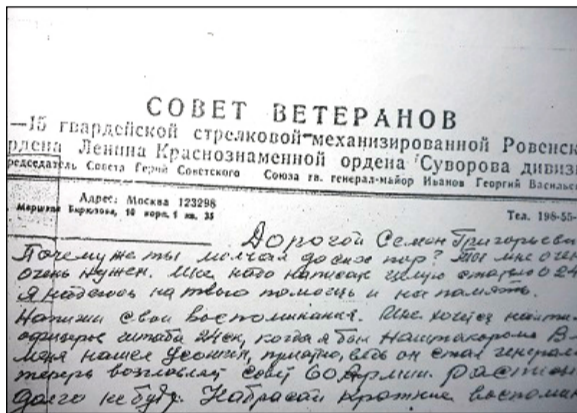 СОВЕТ ВЕТЕРАНОВ
—15 гвардейской стрелковой-механизированной Ровенск
рдена Ленина Краснознаменной ордена Суворова дивиз
редседатель Совета Герой Советского Союза гв. генерал-майор Иванов Георгий Василье
Адрес: Москва 123298
Маршала Бирюзова, 10 корп. 1 кв. 35
Тел. 198-55-
Дорогой Семен Григорьеви
Почему же ты молчал до сих пор? Ты мне очен
очень нужен. Мне надо написать целую о 24
Я надеюсь на твою помощь и на память.
Напиши свои воспоминания. Мне хочется найти
офицеров штаба 24ск, когда я был В
меня нашел приятно, ведь он стал генерал
теперь возглавляет совет 60 Армии.
долго не буду. Набросай краткие воспомин